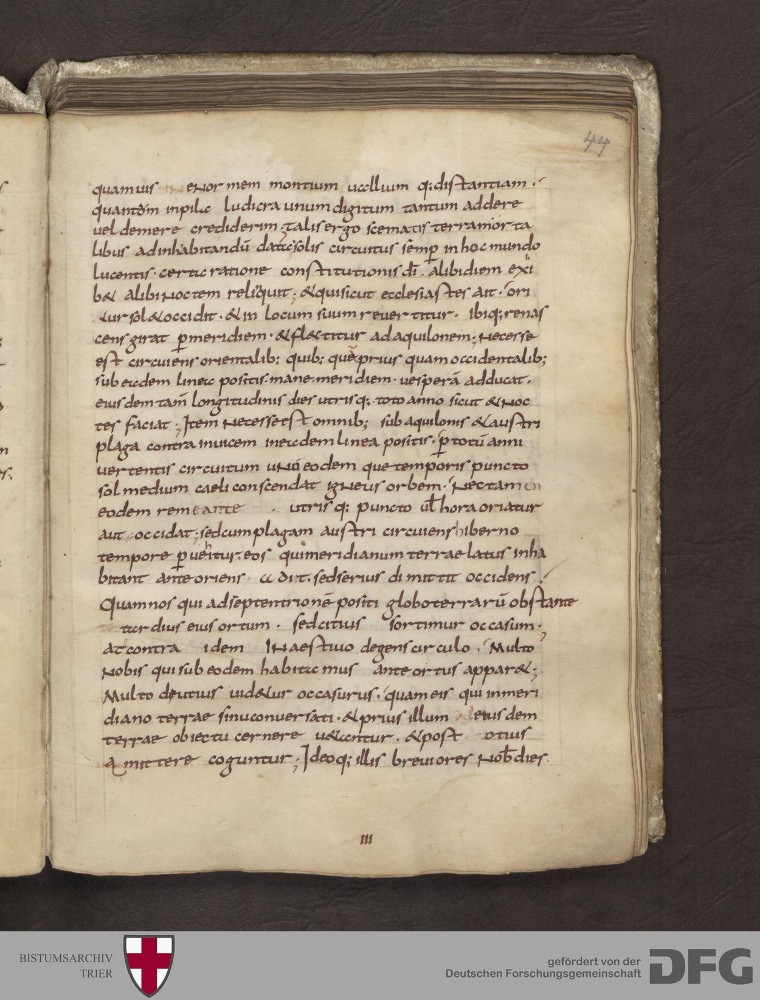 44
quamuis enormem montium uallium q; distantiam
quantum in pila ludicra unum digitum tantum addere
uel demere crediderim; talis ergo scematis terra morta
libus ad inhabitandū data solis circuitus semp in hoc mundo
lucentis certa ratione constitutionis dī alibi diem exi
b& alibi noctem relinquit; & qui sicut ecclesiastes ait. ori
tur sol & occidit. & in locum suum reuertitur. ibiq; renas
cens girat p meridiem. & fl&titur ad aquilonem; necesse
est circuiens orientalib; quib; que prius quam occidentalib;
sub eadem linea positis. mane. meridiem. uesperā adducat.
eiusdem tam longitudinis dies utrisq; toto anno sicut & noc
tes faciat; Item necesse est omnib; sub aquilonis & austri
plaga contra inuicem in eadem linea positis. p totū anni
uertentis circuitum uno eodem que temporis puncto
sol medium caeli conscendat igneus orbem. Nec tam in
eodem remeante utrisq; puncto uł hora oriatur
aut occidat; sed cum plagam austri circuiens hiberno
tempore p uehitur. eos qui meridianum terrae latus inha
bitant ante oriens adit. sed serius dimittit occidens
Quam nos qui ad septentrionē positi globo terrarū obstante
tardius eius ortum. sed citius sortimur occasum.
at contra idem In aestiuo degens circulo. Multo
Nobis qui sub eodem habitamus ante ortus appar&;
Multo deutius uid&ur occasurus. quam eis qui in meri
diano terrae sinu conuersati. & prius illum eiusdem
terrae obiectu cernere u&antur. & post otius
amittere coguntur; Ideoq; illis breuiores nob dies
III
BISTUMSARCHIV
TRIER
gefördert von der
Deutschen Forschungsgemeinschaft
DFG